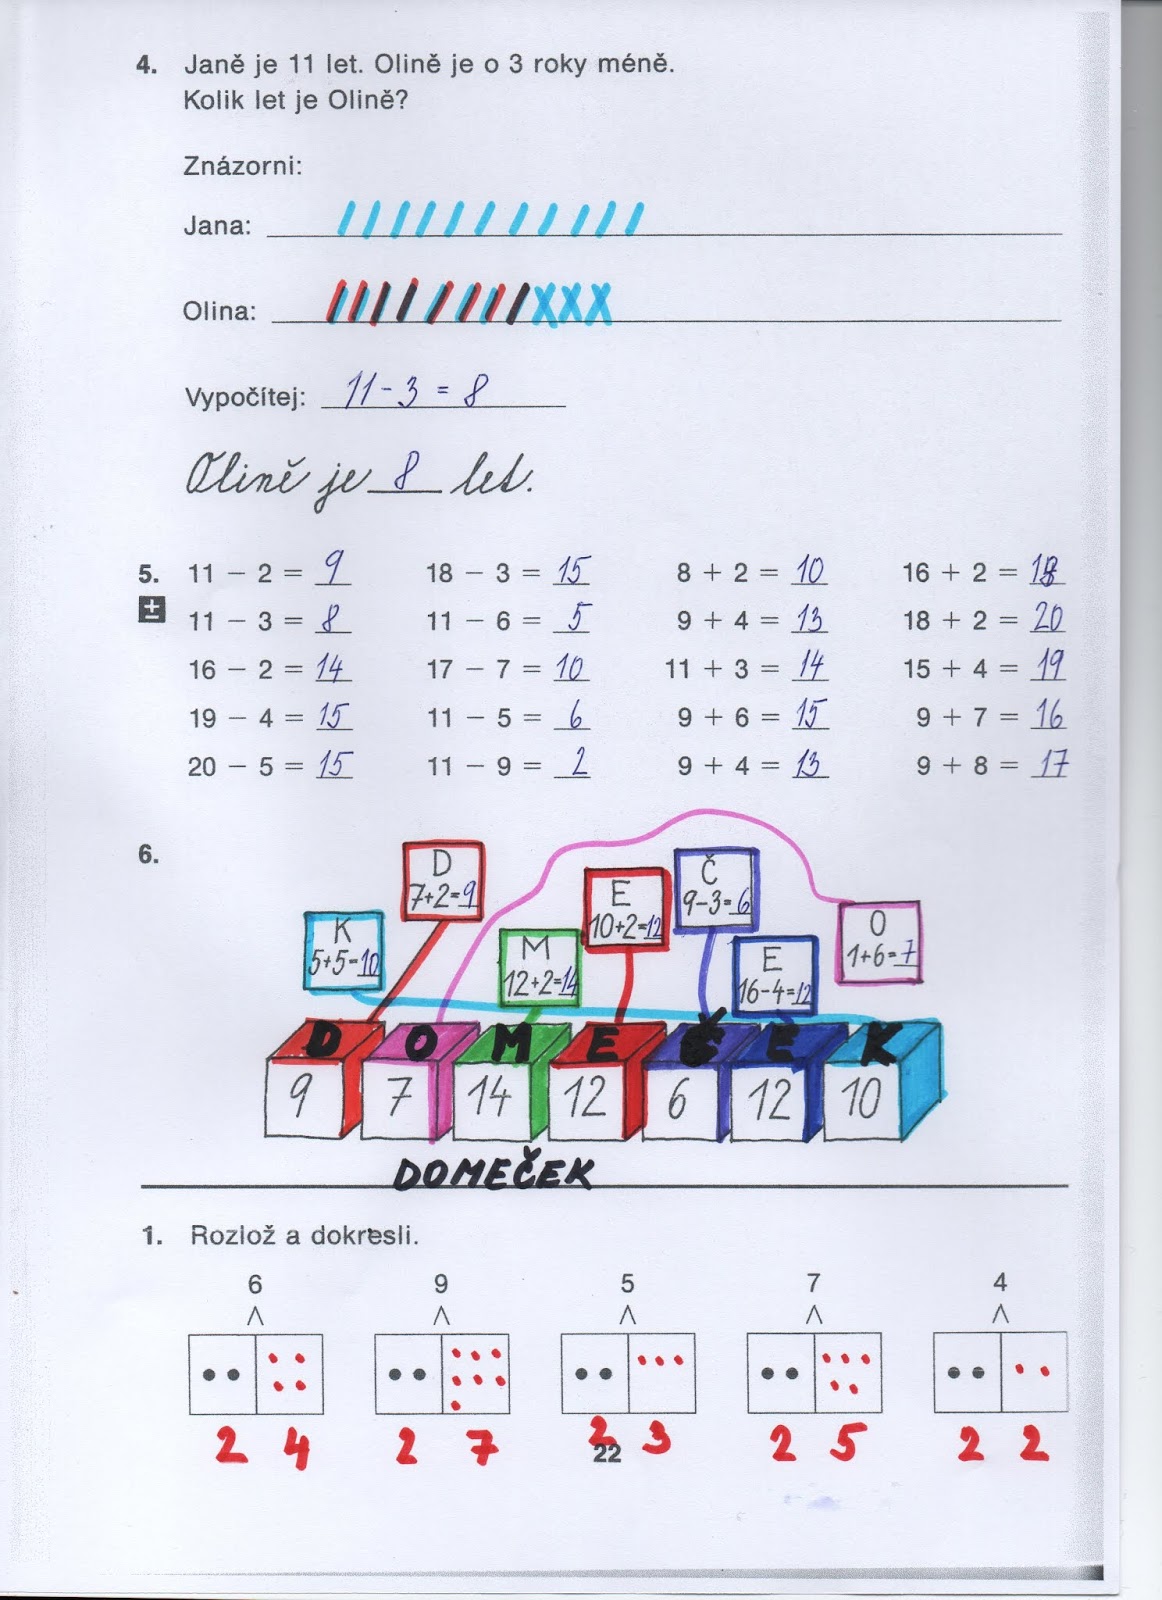 4. Janě je 11 let. Olině je o 3 roky méně.
Kolik let je Olině?
Znázorni:
Jana:
Olina: XXX
Vypočítej: 11 - 3 = 8
Olině je 8 let.
5. 11 − 2 = 9 18 − 3 = 15 8 + 2 = 10 16 + 2 = 18
11 − 3 = 8 11 − 6 = 5 9 + 4 = 13 18 + 2 = 20
16 − 2 = 14 17 − 7 = 10 11 + 3 = 14 15 + 4 = 19
19 − 4 = 15 11 − 5 = 6 9 + 6 = 15 9 + 7 = 16
20 − 5 = 15 11 − 9 = 2 9 + 4 = 13 9 + 8 = 17
6.
K
5+5=10
D
7+2=9
M
12+2=14
E
10+2=12
Č
9-3=6
E
16-4=12
O
1+6=7
D O M E Č E K
9 7 14 12 6 12 10
DOMEČEK
1. Rozlož a dokresli.
6 9 5 7 4
2 4 2 7 2 3 2 5 2 2
22